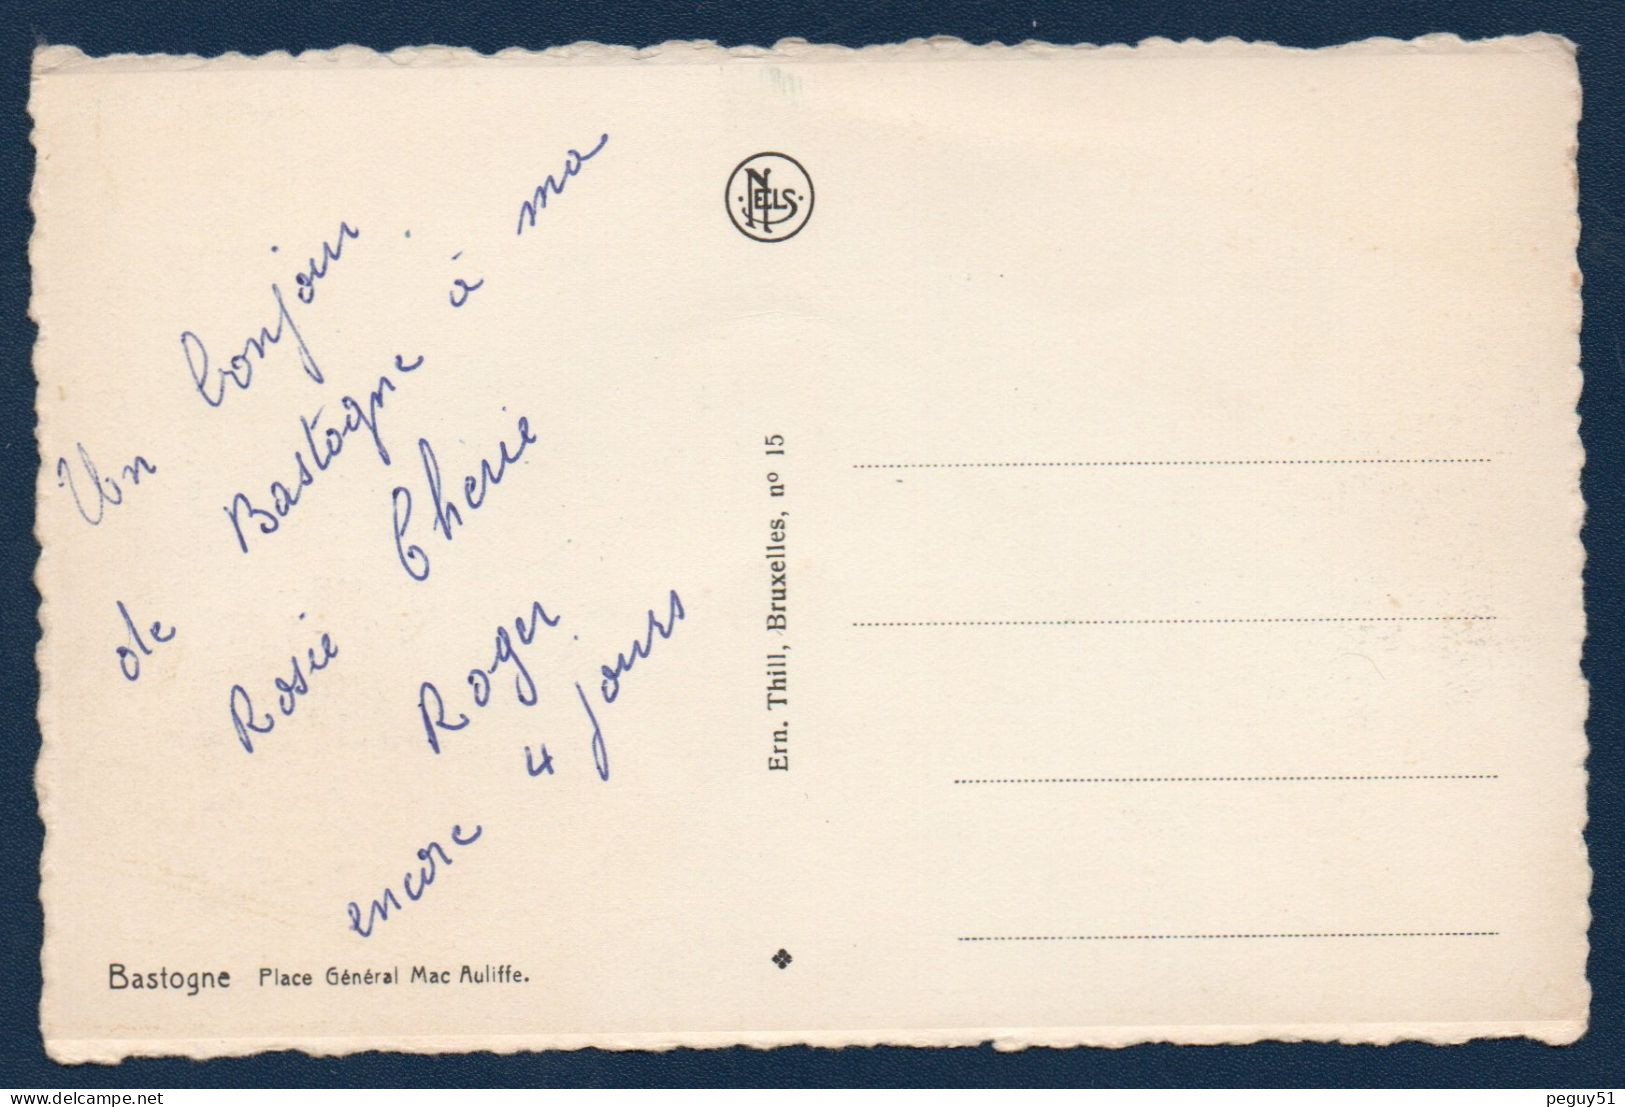 Un bonjour
de Bastogne à ma
Rosie Cherie
Roger
encore 4 jours
Bastogne Place Général Mac Auliffe.
NELS
Ern. Thill, Bruxelles, nº 15
peguy51